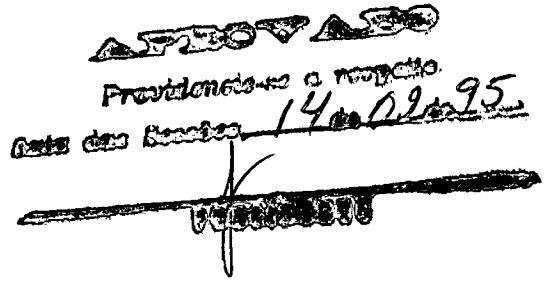 APROVADO
Providencie-se a respeito.
Sala das Sessões, 14 de 09 de 95
PRESIDENTE